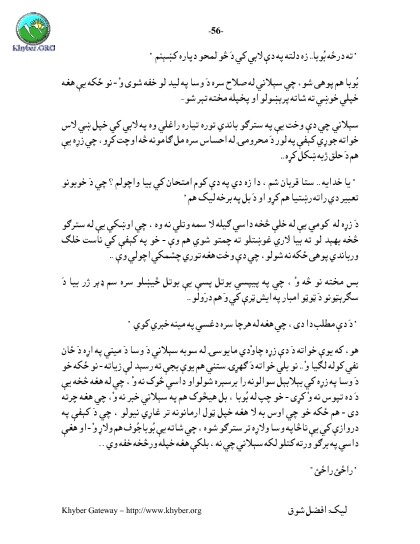 Khyber.ORG
-56-
" ته درځه بُوبا.. زه دلته په دې لابي کي دَ څو لمحو دپاره کښېنم "
بُوبا هم پوهی شو ، چي سېلاني له صلاح سره دَ وسا په ليد لو خفه شوی وْ - نو ځکه يې هغه
خپلي خوښي ته شاته پرېښولو او پخپله مخته تېر شو -
سېلاني چي دې وخت يې په سترګو باندي توره تياره راغلي وه په لابي کي خپل ښي لاس
خواته جوړي کېفې په لور دَ محرومۍ له احساس سره مل ګامونه څه اوچت کړو ، چي زړه يې
هم دَ حلق ژيه ښکل کړه ..
" يا خدايه .. ستا قربان شم ، دا زه دې په دې کوم امتحان کي بيا واچولم ؟ چي دَ خوبونو
تعبير دې راته رښتيا هم کړو او دَ بل په برخه ليک هم "
دَ زړه له کومي يې له خلې څخه داسي ګيله لا سمه وتلي نه وه ، چي اوښکي يې له سترګو
څخه بهېد لو ته بيا لاري غوښتلو ته چمتو شوي هم وې - خو په کېفې کي ناست خلګ
ورباندي پوهی ځکه نه شولو ، چي دې وخت هغه توري چشمکي اچولي وې ..
بس مخته نو څه وْ ، چي په پيپسي بوتل پسې يې بوتل څېښلو سره سم ډېر ژر بيا دَ
سګرېټونو دَ ټوټو امبار په اېش ټرې کي وَ هم درولو ..
" دَ دې مطلب دا دی ، چي هغه له هر چا سره دغسي په مينه خبري کوي "
هو ، که يوې خواته دَ دې زړه چاودي مايوسۍ له سويه سېلاني دَ وسا دَ ميني په اړه دَ ځان
نفي کوله لګيا وْ .. نو بلي خواته دَ ګهړۍ ستني هم يوې بجې ته رسېد لي زياته - نو ځکه خو
دَ وسا په زړه کي بېلابېل سوالونه را برسېره شولو او داسي څوک نه وْ ، چي له هغه څخه يې
دَ ده تپوس نه وْ کړی - خو چپ له بُوبا ، بل هيڅوک هم په سېلاني خبر نه وْ ، چي هغه چرته
دی - هم ځکه خو چي اوس په لا هغه خپل ټول ارمانونه تر غاړي نيولو ، چي دَ کېفې په
دروازې کي يې ناڅاپه وسا ولاړه تر سترګو شوه ، چي شاته يې بُوبا چُوف هم ولاړ وْ - او هغې
داسي په برګو ورته کتلو لکه سېلاني چي نه ، بلکې هغه خپله ورڅخه خفه وي ..
" راځئ راځئ "
Khyber Gateway – http://www.khyber.org
ليک: افضل شوق